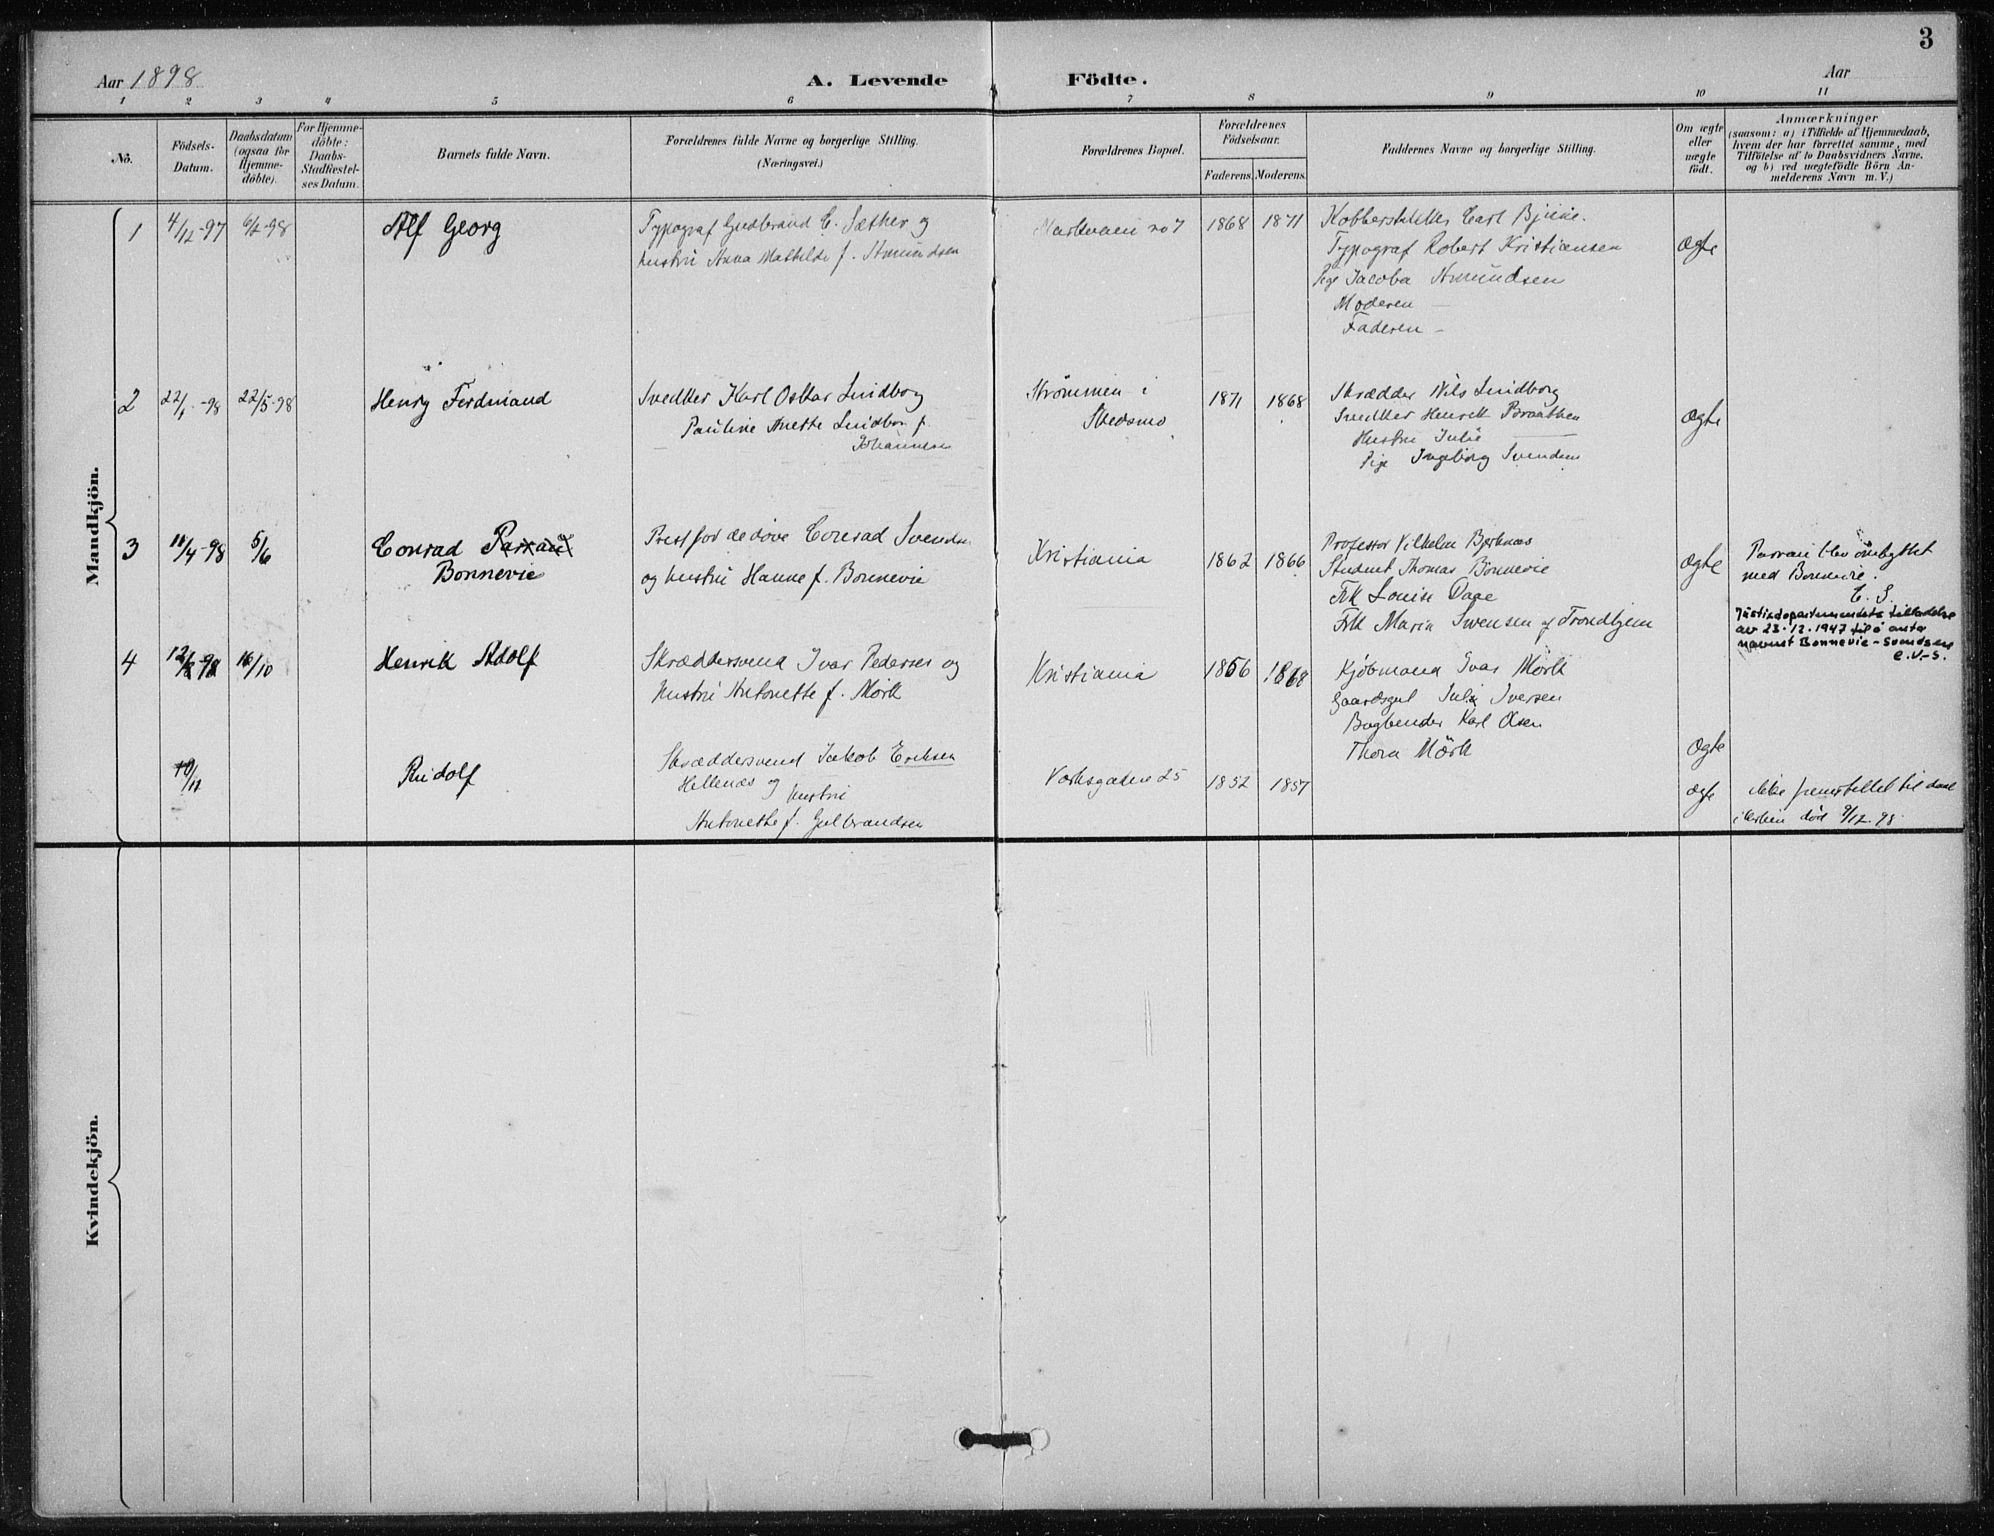 3
Aar 1898.
A. Levende Födte.
Aar
1 2 3 4 5 6 7 8 9 10 11
No.
Födsels-
Datum.
Daabsdatum
(ogsaa for
Hjemme-
döbte).
For Hjemme-
döbte:
Daabs-
Stadfæstel-
ses Datum.
Barnets fulde Navn.
Forældrenes fulde Navne og borgerlige Stilling.
(Næringsvei.)
Forældrenes Bopæl.
Forældrenes
Födselsaar.
Faderens. Moderens.
Faddernes Navne og borgerlige Stilling.
Om ægte
eller
uægte
födt.
Anmærkninger
(saasom: a) i Tilfælde af Hjemmedaab,
hvem der har forrettet samme, med
Tilföielse af to Daabsvidners Navne,
og b) ved uægtefödte Börn An-
melderens Navn m. V.)
Mandkjön.
1 4/12-97 6/2-98 Alf Georg
Typograf Gudbrand C. Sæther og
hustru Anna Mathilde f. Amundsen
no 7 1868 1871
Kobberstikker Carl
Typograf Robert Kristiansen
Pige Jacoba Amundsen
Moderen —
Faderen —
Ægte
2 22/1-98 22/5-98 Henry Ferdinand
Snedker Karl Oskar Lindborg
Pauline Anette Lindborg f.
Johannesen
Strømmen i
Skedsmo
1871 1868
Skrædder Nils Lindborg
Snedker Henrik Braathen
Hustru Julie —
Pige Ingeborg Svendsen
Ægte
3 11/4-98 5/6 Conrad Parrau
Bonnevie
Prest for de døve Conrad Svendsen
og hustru Hanne f. Bonnevie
Kristiania 1862 1866
Professor Vilhelm Bjerknes
Student Thomas Bonnevie
Frk Louise Daae
Frk Maria Svensen af Trondhjem
Ægte
Parrau blev ombyttet
med Bonnevie.
C. S.
Justisdepartementets tillatelse
av 23.12.1947 til å anta
navnet Bonnevie-Svendsen
C.B.-S.
4 12/8-98 16/10 Henrik Adolf
Skræddersvend Ivar Pedersen og
hustru Antonette f. Mørk
Kristiania 1856 1868
Kjøbmand Ivar Mørk
Gaardsgut Julius Iversen
Bogbinder Karl Olsen
Thora Mørk
Ægte
10/11 Rudolf
Skræddersvend Jakob Eriksen
Hellenæs og hustru
Antonette f. Gulbrandsen
25 1852 1857
Ægte
ikke fremstillet til daab
i kirken død 9/12.98.
Kvindekjön.